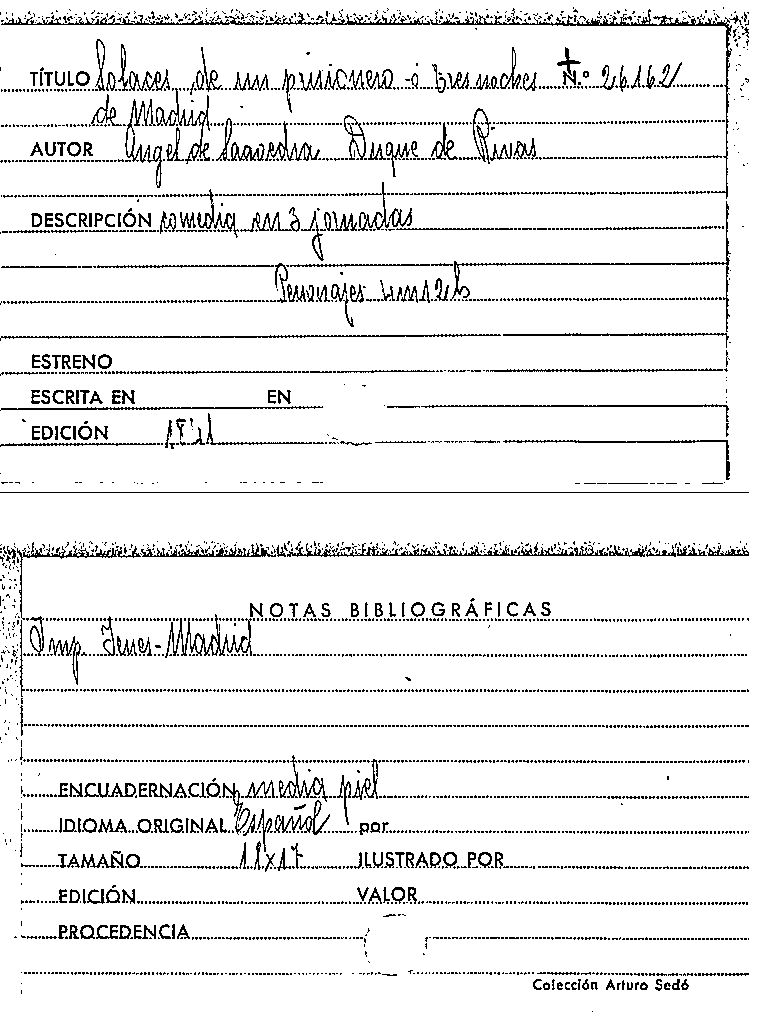 TÍTULO Solaces de un prisionero -ó tres noches N.º 26162
de Madrid
AUTOR Angel de Saavedra Duque de Rivas
DESCRIPCIÓN comedia en 3 jornadas
Personajes 4m 12h
ESTRENO
ESCRITA EN EN
EDICIÓN 1841
NOTAS BIBLIOGRÁFICAS
Imp. Yenes-Madrid
ENCUADERNACIÓN media piel
IDIOMA ORIGINAL Español por
TAMAÑO 11x17 ILUSTRADO POR
EDICIÓN VALOR
PROCEDENCIA
Colección Arturo Sedó